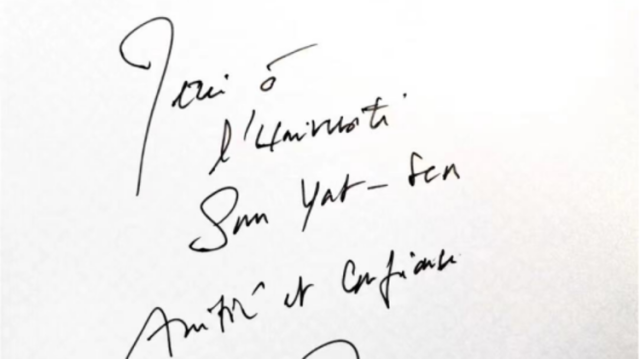 Merci à
l'Université
Sun Yat-Sen
Amitié et Confiance